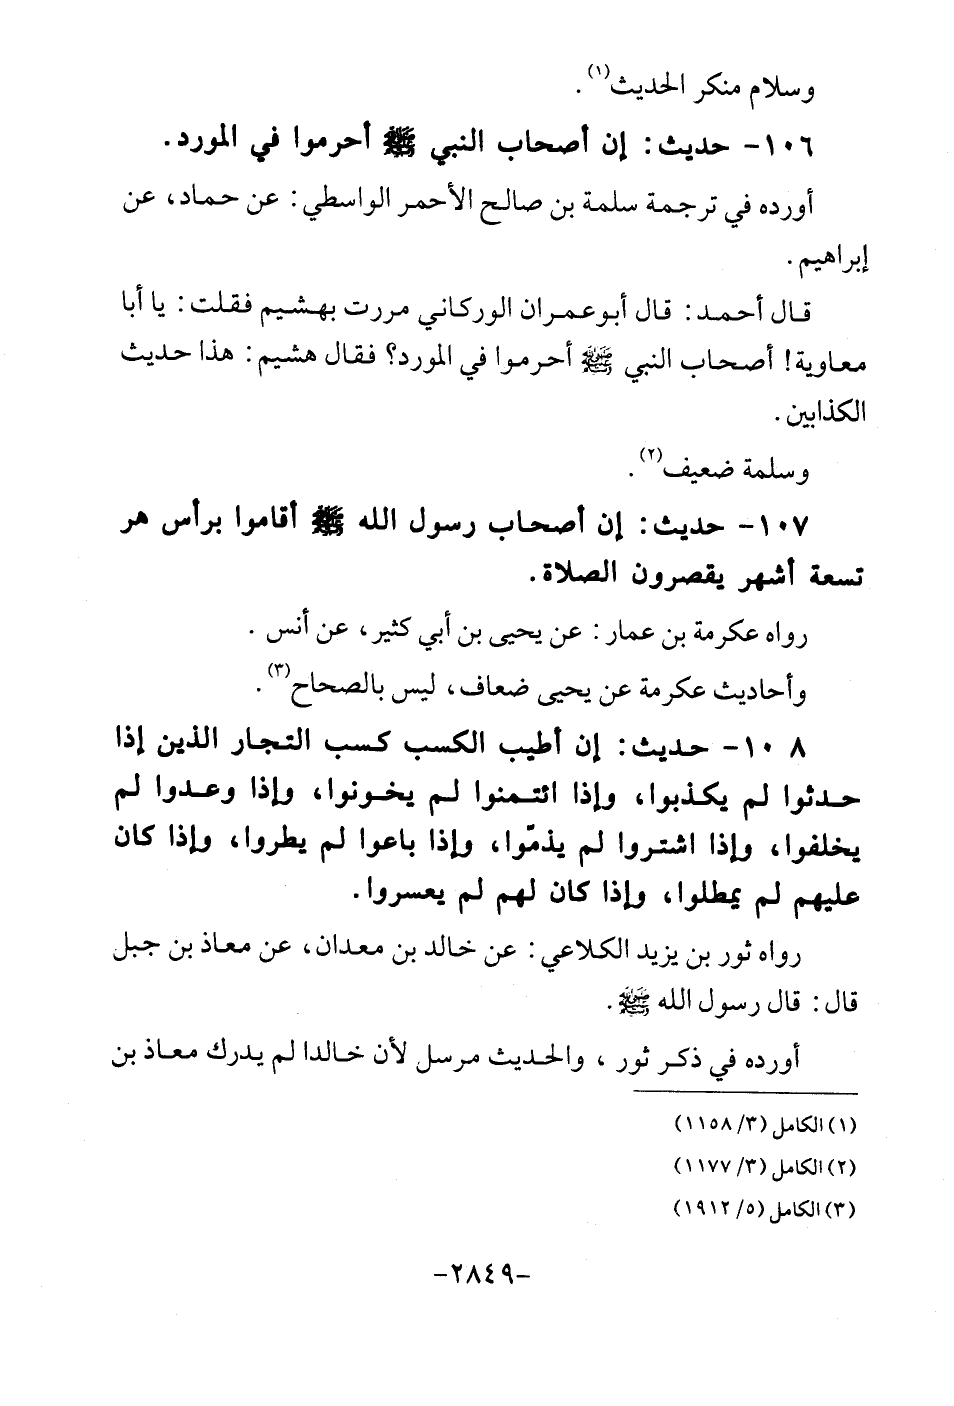 وسلام منكر الحديث(١).
١٠٦- حديث: إن أصحاب النبي ﷺ أحرموا في المورد.
أورده في ترجمة سلمة بن صالح الأحمر الواسطي: عن حماد، عن
إبراهيم.
قال أحمد: قال أبوعمران الوركاني مررت بهشيم فقلت: يا أبا
معاوية! أصحاب النبي ﷺ أحرموا في المورد؟ فقال هشيم: هذا حديث
الكذابين.
وسلمة ضعيف(٢).
١٠٧- حديث: إن أصحاب رسول الله ﷺ أقاموا برأس هر
تسعة أشهر يقصرون الصلاة.
رواه عكرمة بن عمار: عن يحيى بن أبي كثير، عن أنس .
وأحاديث عكرمة عن يحيى ضعاف، ليس بالصحاح(٣).
١٠٨- حديث: إن أطيب الكسب كسب التجار الذين إذا
حدثوا لم يكذبوا، وإذا ائتمنوا لم يخونوا، وإذا وعدوا لم
يخلفوا، وإذا اشتروا لم يذمّوا، وإذا باعوا لم يطروا، وإذا كان
عليهم لم يمطلوا، وإذا كان لهم لم يعسروا.
رواه ثور بن يزيد الكلاعي: عن خالد بن معدان، عن معاذ بن جبل
قال: قال رسول الله ﷺ.
أورده في ذكر ثور ، والحديث مرسل لأن خالدا لم يدرك معاذ بن
(١) الكامل (٣/ ١١٥٨)
(٢) الكامل (٣/ ١١٧٧)
(٣) الكامل (٥/ ١٩١٢)
-٢٨٤٩-